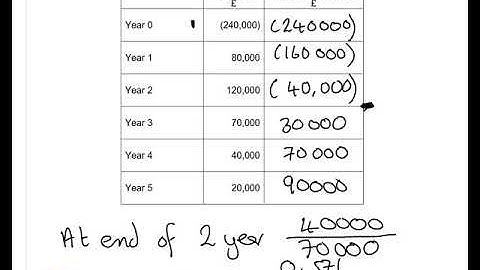 £ £
Year 0 (240,000) (240000)
Year 1 80,000 (160 000)
Year 2 120,000 (40,000)
Year 3 70,000 30000
Year 4 40,000 70000
Year 5 20,000 90000
At end of 2 year 40000
70000